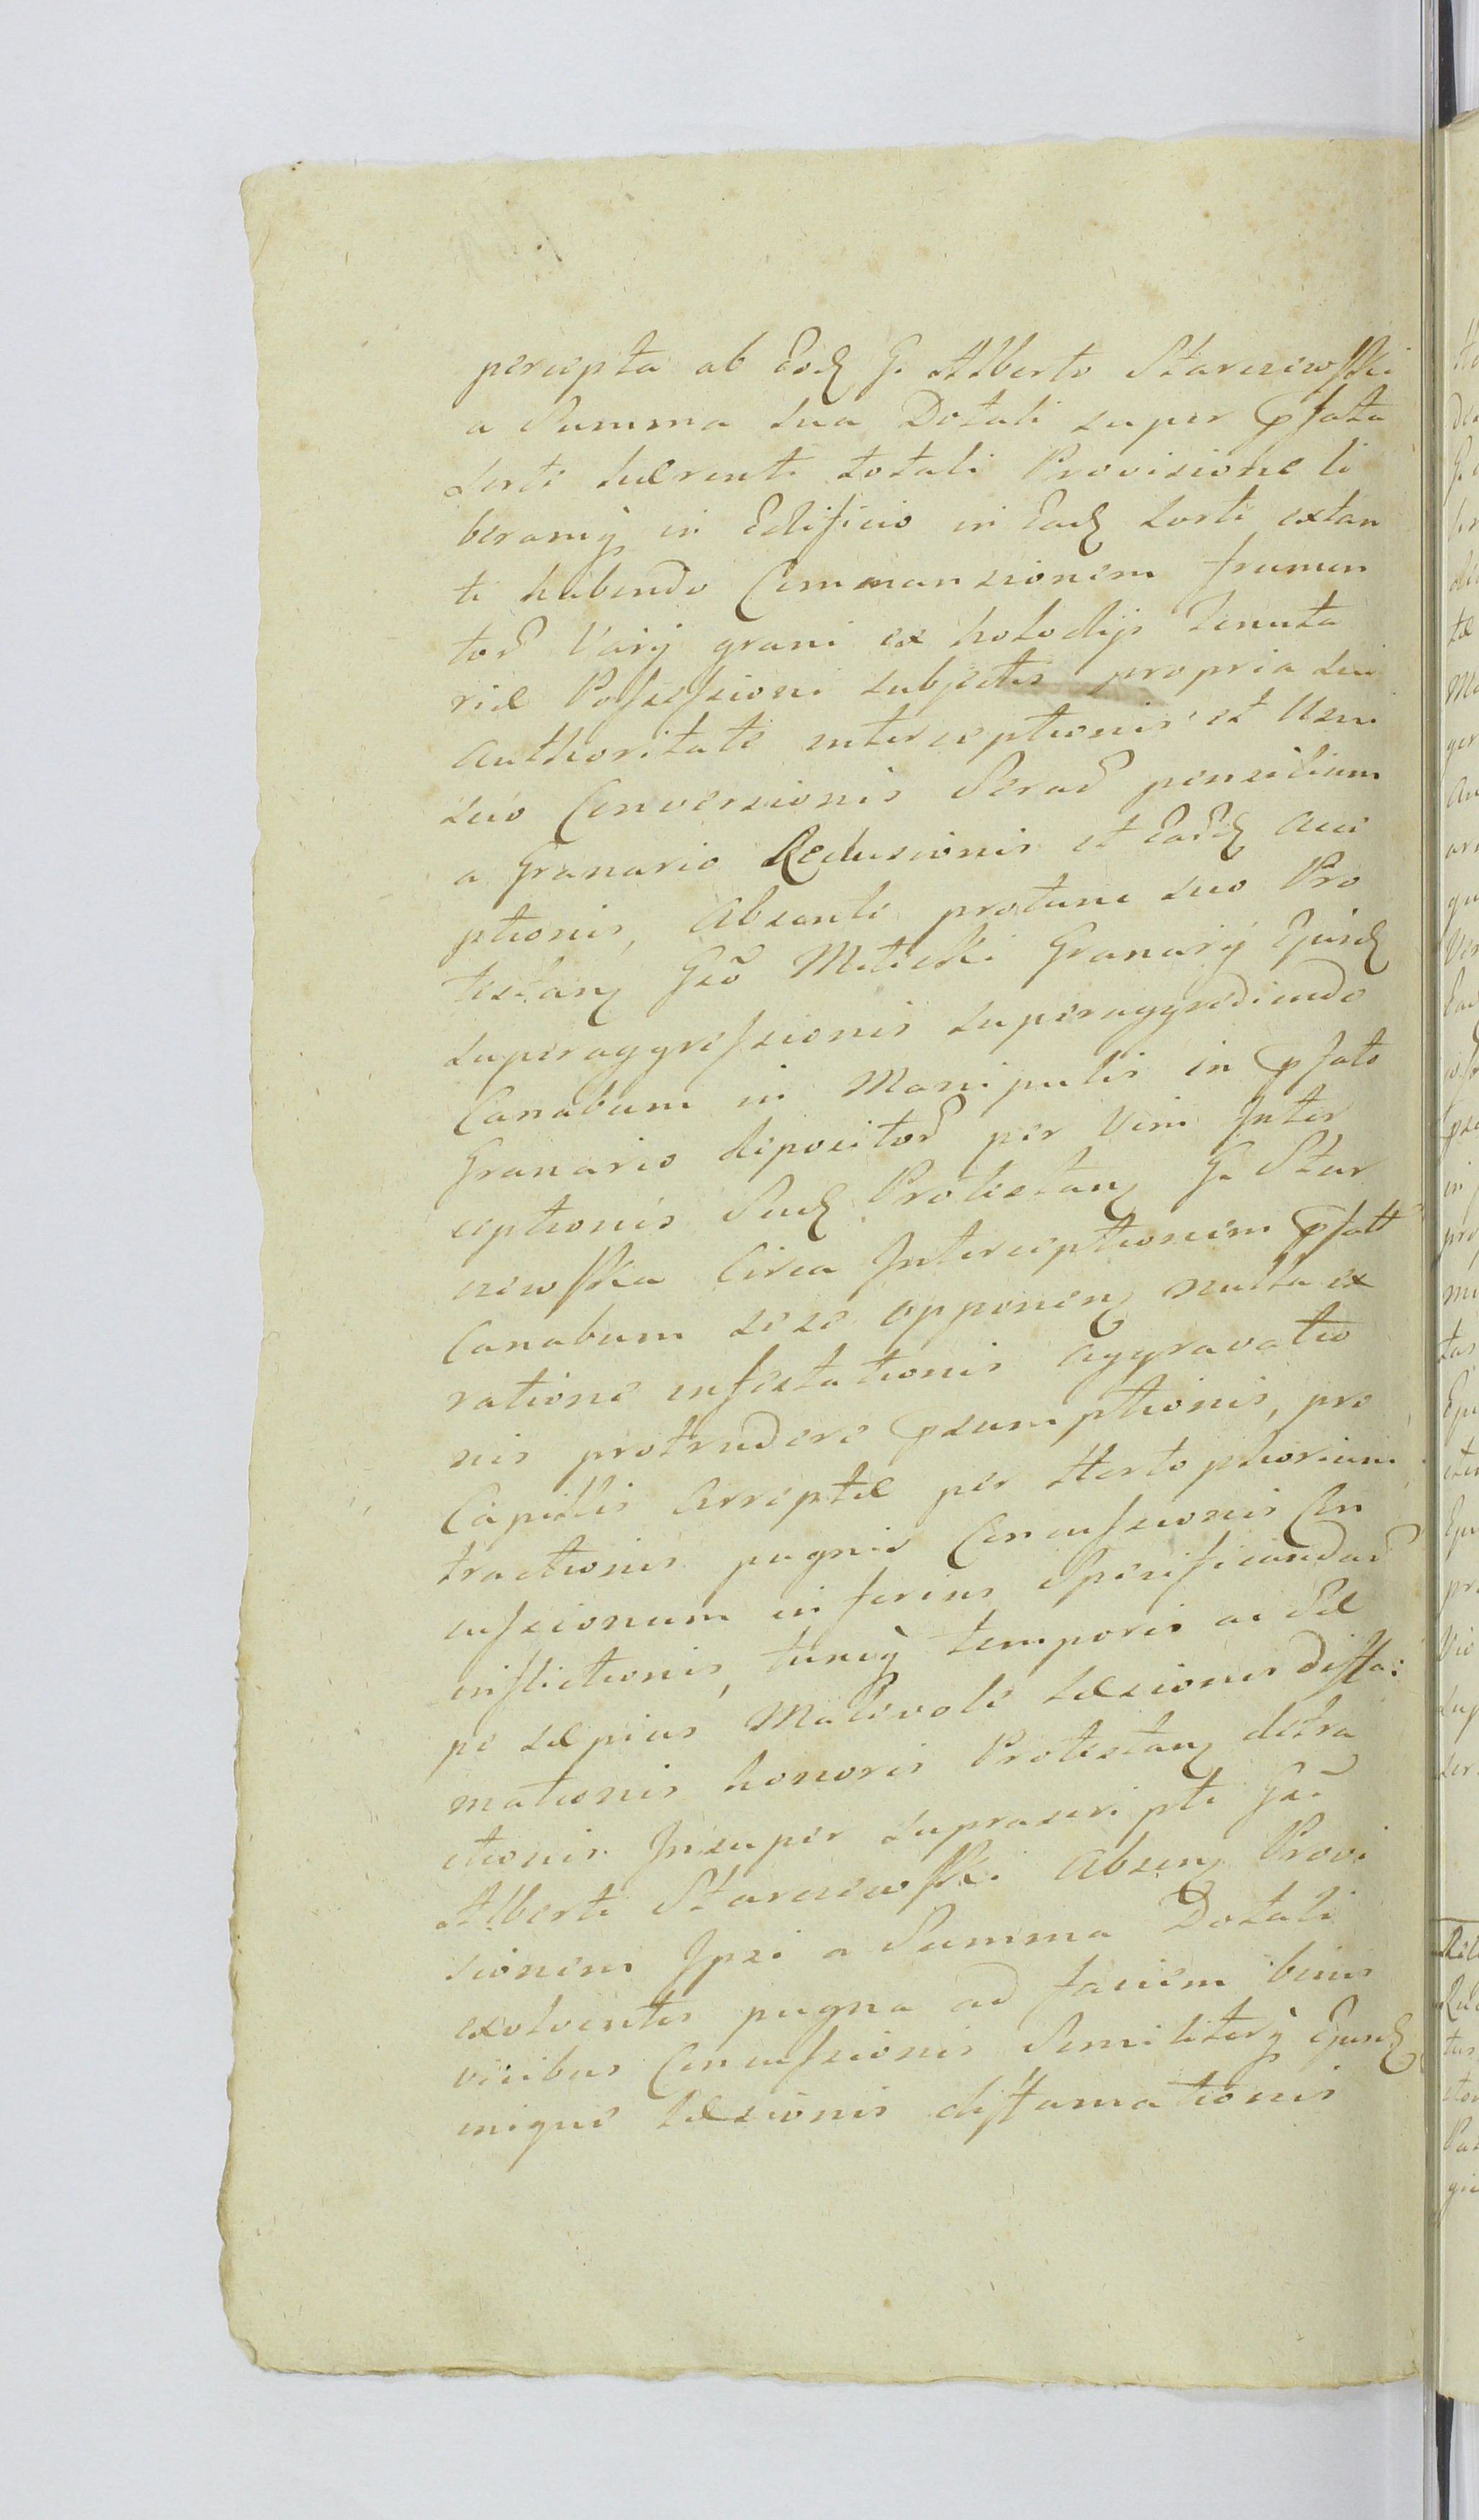 percepta ab Eod G. Alberto Starczewski
a Summa sua Dotali super pfata
Sorti hærenti totali Provisione li
beramq in Edificio in Ead sorti extan
ti habendo Commansionem frumen
tor Varij grani ex holodijs Tenuta
riæ Possessioni subjectis propria sui
authoritate interceptionis et Usui
suo Conversionis Serar pensilium
a Granario Reclusionis et Ear acce
ptionis, absente protunc suo Pro
testan Gso Milicki Granarij Ejusd
superaggressionis superaggrediendo
Canabum in Manipulis in pfato
Granario depositor per Vim Inter
ceptionis Sud Protestan G. Star
czewska Circa Interceptionem pfatt
Canabum sese opponen nulla ex
ratione infestationis aggravatio
nis protrudere psumptionis, pro
Capillis arreptæ per Hortophorium
tractionis pugnis Concussionis Con
cussionum inferius Specificandar
inflictionis, tuncq temporis ac Sæ
pe sæpius Malevole Læsionis diffa:
mationis honoris Protestan detra
ctionis Insuper suprascripti Gsi
Alberti Starczewski absen Provi
sionem Ipsi a Summa Dotali
exolventis pugna ad faciem binis
vicibus Concussionis Similiterq Ejusd
inique Læsionis diffamationis